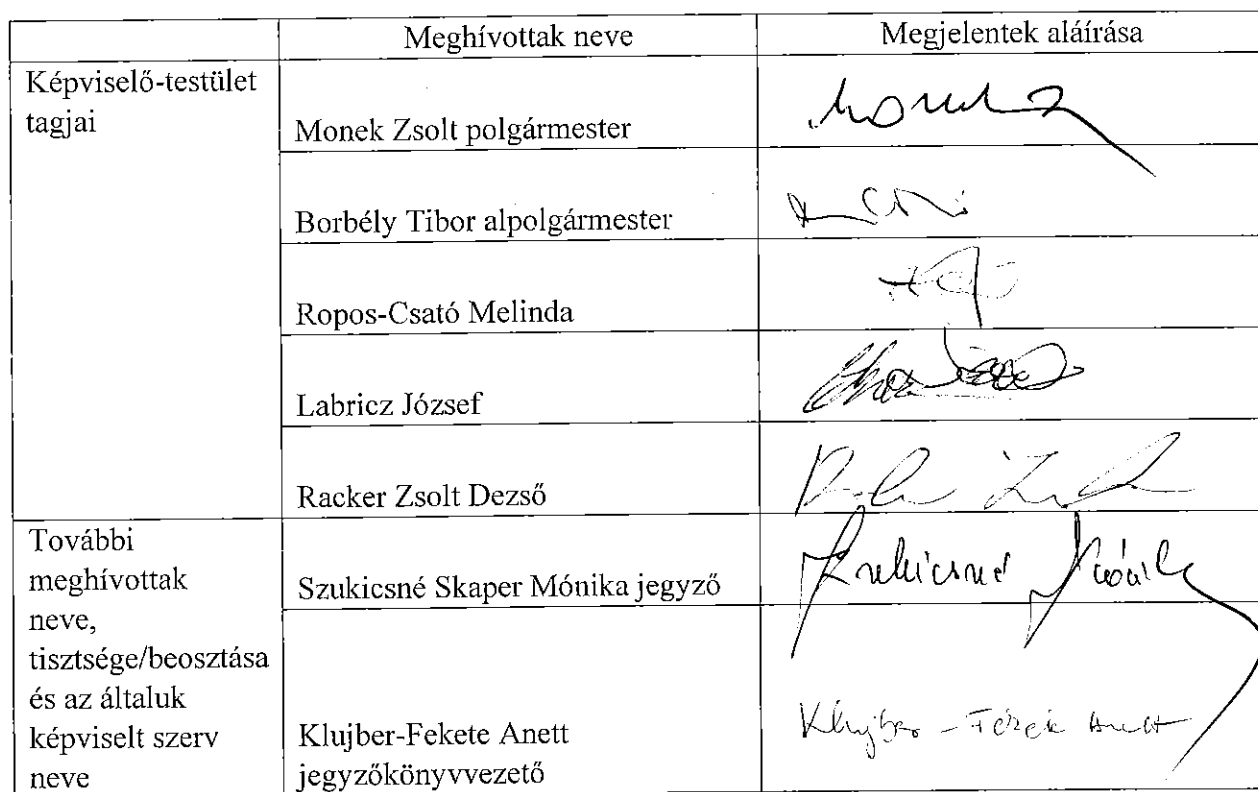 Meghívottak neve
Megjelentek aláírása
Képviselő-testület
tagjai
Monek Zsolt polgármester
Borbély Tibor alpolgármester
Ropos-Csató Melinda
Labricz József
Racker Zsolt Dezső
További
meghívottak
neve,
tisztsége/beosztása
és az általuk
képviselt szerv
neve
Szukicsné Skaper Mónika jegyző
Szukicsné Mónika
Klujber-Fekete Anett
jegyzőkönyvvezető
Klujber-Fekete Anett